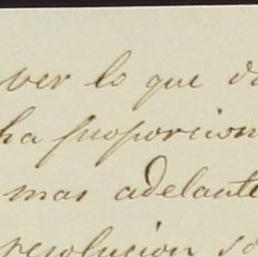 ver lo que d
ha proporcion
mas adelante
resolucion so